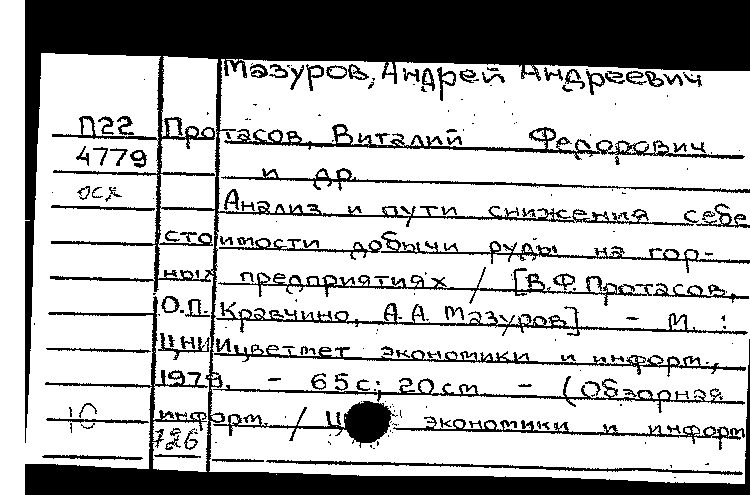 Мазуров, Андрей Андреевич
П22 Протасов, Виталий Федорович
4779 и др.
осх
Анализ и пути снижения себе
стоимости добычи руды на гор-
ных предприятиях / [В.Ф. Протасов,
О.П. Кравчино, А.А. Мазуров] - М. :
ЦНИИцветмет экономики и информ.,
1979. - 65 с; 20 см - (Обзорная
10 информ. / экономики и информ
726